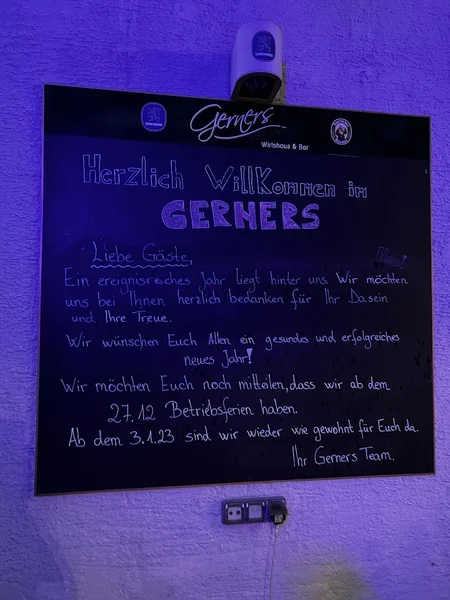 Gerners
Wirtshaus & Bar
Herzlich Willkommen im
GERNERS
Liebe Gäste,
Ein ereignisreiches Jahr liegt hinter uns. Wir möchten
uns bei Ihnen herzlich bedanken für Ihr Dasein
und Ihre Treue.
Wir wünschen Euch Allen ein gesundes und erfolgreiches
neues Jahr!
Wir möchten Euch noch mitteilen, dass wir ab dem
27.12 Betriebsferien haben.
Ab dem 3.1.23 sind wir wieder wie gewohnt für Euch da.
Ihr Gerners Team.